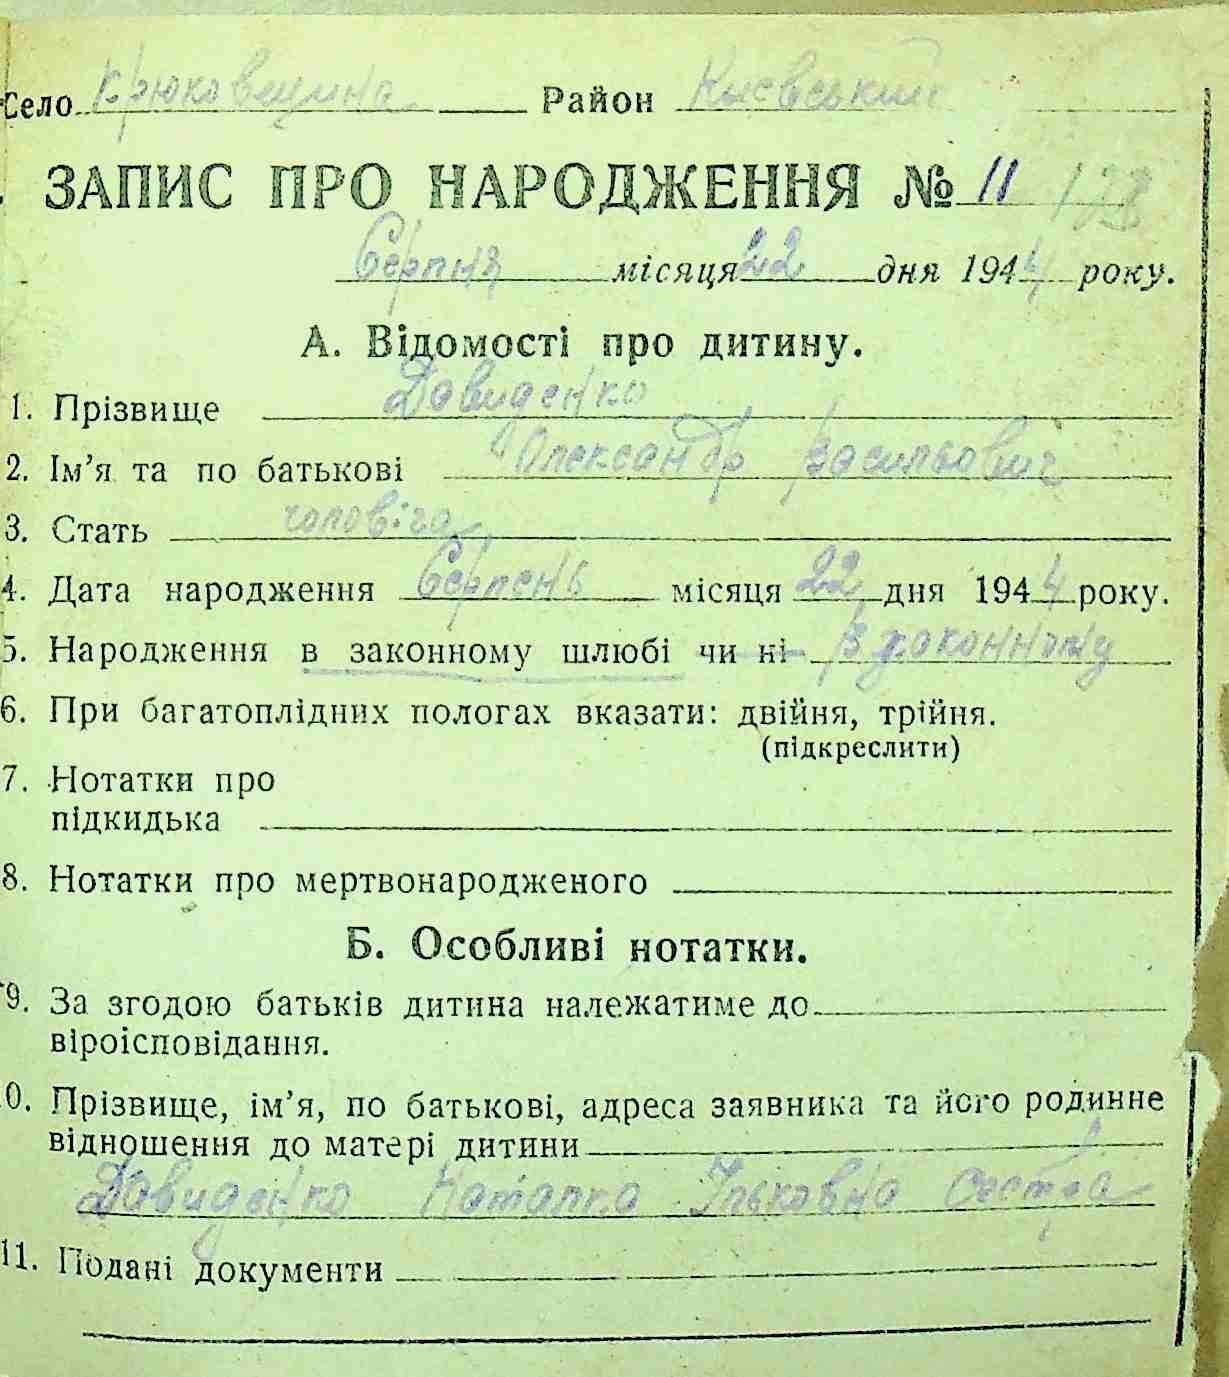 Село Крюковщина Район Києвський
ЗАПИС ПРО НАРОДЖЕННЯ № 11 128
Серпня місяця 22 дня 1944 року.
А. Відомості про дитину.
1. Прізвище Давиденко
2. Ім’я та по батькові Олександр Васильович
3. Стать
4. Дата народження Серпень місяця 22 дня 1944 року.
5. Народження в законному шлюбі чи ні В законному
6. При багатоплідних пологах вказати: двійня, трійня.
(підкреслити)
7. Нотатки про
підкидька
8. Нотатки про мертвонародженого
Б. Особливі нотатки.
9. За згодою батьків дитина належатиме до
віроісповідання.
0. Прізвище, ім’я, по батькові, адреса заявника та його родинне
відношення до матері дитини
Давиденко Наталка Ільковна Сестра
11. Подані документи